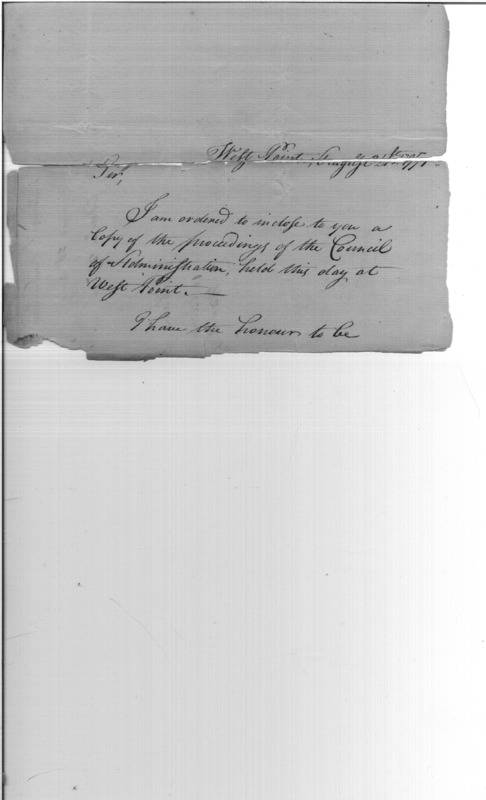 West Point, August
Sir,
I am ordered to inclose to you a
Copy of the proceedings of the Council
of Administration, held this day at
West Point. —
I have the honour to be